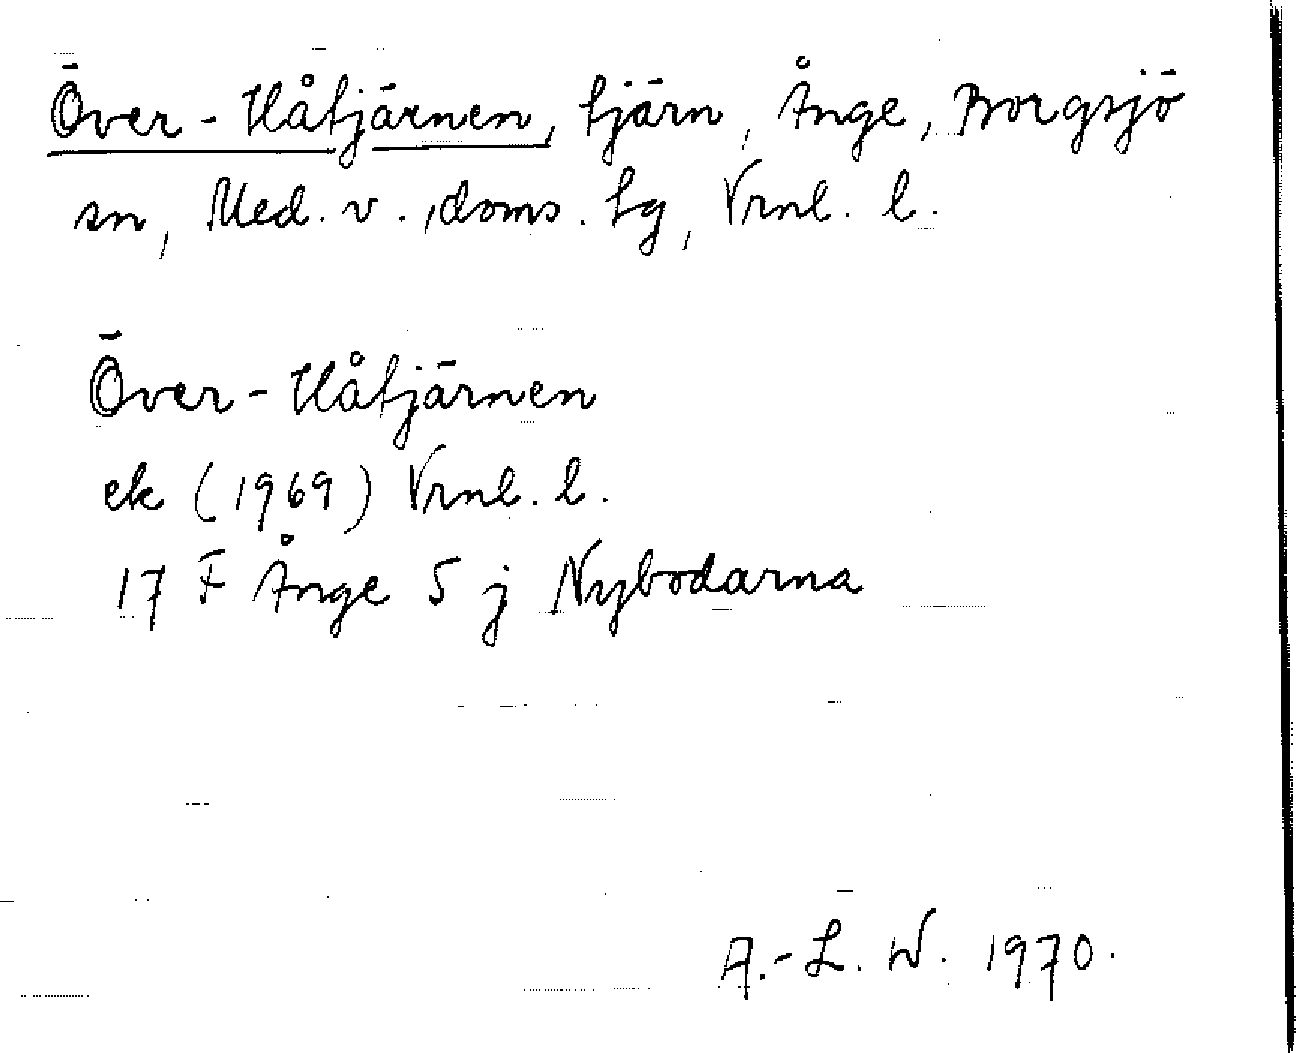 Över-Håtjärnen, tjärn, Ånge, Borgsjö
sn, Med. v., doms. tg, Vrnl. l.
Över-Håtjärnen
ek (1969) Vrnl. l.
17 F Ånge 5 j Nybodarna
A.-L. W. 1970.